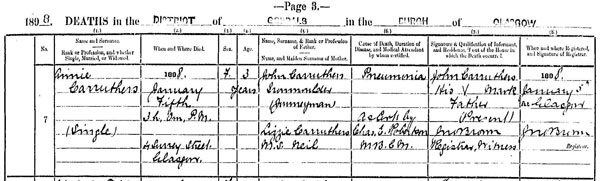 —Page 3.—
1898. DEATHS in the DISTRICT of GORBALS in the BURGH of GLASGOW
(1.) (2.) (3.) (4.) (5.) (6.) (7.) (8.)
No.
Name and Surname.
Rank or Profession, and whether Single, Married, or Widowed.
When and Where Died.
Sex.
Age.
Name, Surname, & Rank or Profession of Father.
Name, and Maiden Surname of Mother.
Cause of Death, Duration of Disease, and Medical Attendant by whom certified.
Signature & Qualification of Informant, and Residence, if out of the House in which the Death occurred.
When and where Registered, and Signature of Registrar.
7
Annie
Carruthers
(Single)
1898.
January
Fifth
3h. 0m. P.M.
4 Surrey Street
Glasgow.
F.
3
Years
John Carruthers
Ironmoulder
(Journeyman)
Lizzie Carruthers
M.S. Neil
Pneumonia
As Cert by
Chas. E. Robertson
M.B. C.M.
John Carruthers
His X Mark
Father
(Present)
Jno Brown
Registrar, Witness
1898.
January 5th
At Glasgow
Jno Brown
Registrar.